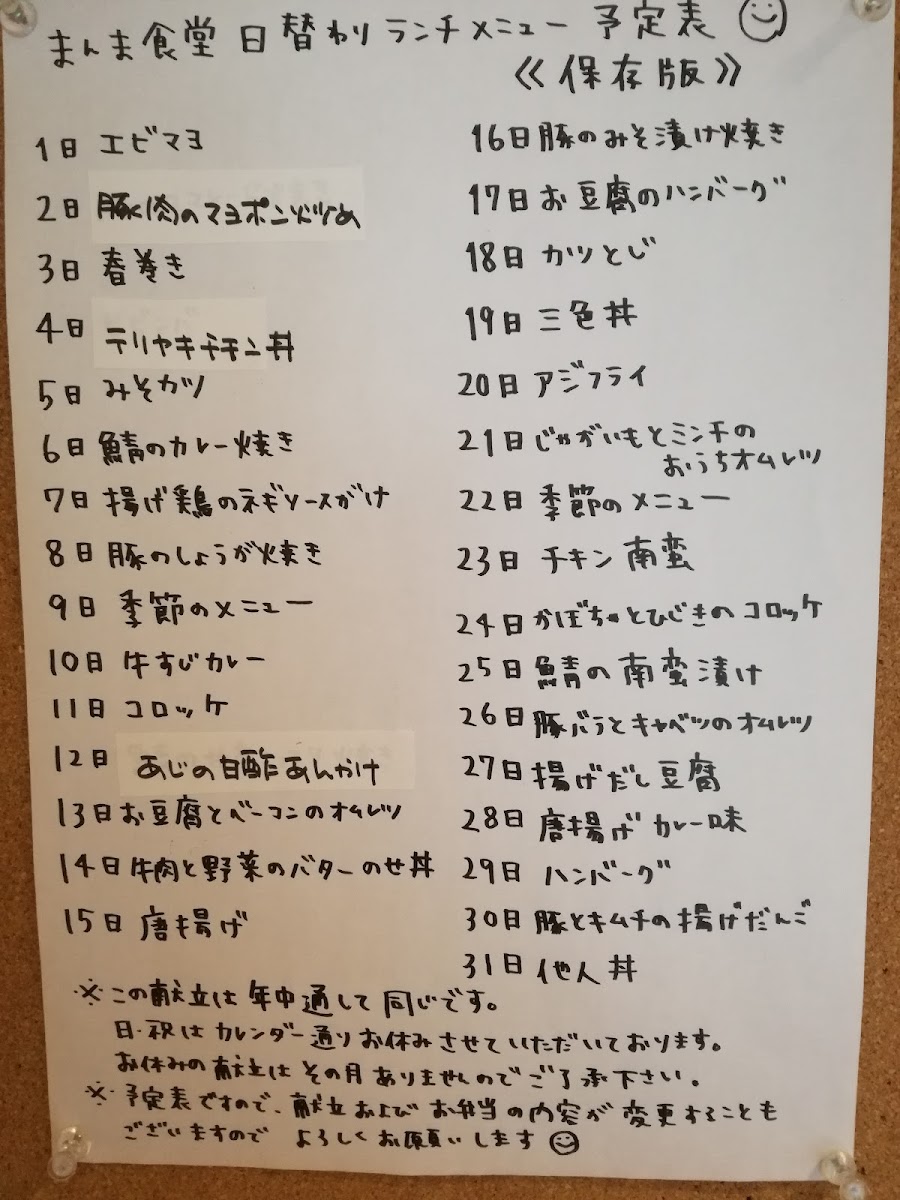 まんま食堂 日替わりランチメニュー 予定表
《保存版》
1日 エビマヨ
2日 豚肉のマヨポン炒め
3日 春巻き
4日 テリヤキチキン丼
5日 みそカツ
6日 鯖のカレー焼き
7日 揚げ鶏のネギソースがけ
8日 豚のしょうが焼き
9日 季節のメニュー
10日 牛すじカレー
11日 コロッケ
12日 あじの甘酢あんかけ
13日 お豆腐とベーコンのオムレツ
14日 牛肉と野菜のバターのせ丼
15日 唐揚げ
16日 豚のみそ漬け焼き
17日 お豆腐のハンバーグ
18日 カツとじ
19日 三色丼
20日 アジフライ
21日 じゃがいもとミンチの
おうちオムレツ
22日 季節のメニュー
23日 チキン南蛮
24日 かぼちゃとひじきのコロッケ
25日 鯖の南蛮漬け
26日 豚バラとキャベツのオムレツ
27日 揚げだし豆腐
28日 唐揚げカレー味
29日 ハンバーグ
30日 豚とキムチの揚げだんご
31日 他人丼
※この献立は年中通して同じです。
日・祝はカレンダー通りお休みさせていただいております。
お休みの献立はその月ありませんのでご了承下さい。
※予定表ですので、献立およびお弁当の内容が変更することも
ございますので よろしくお願いします